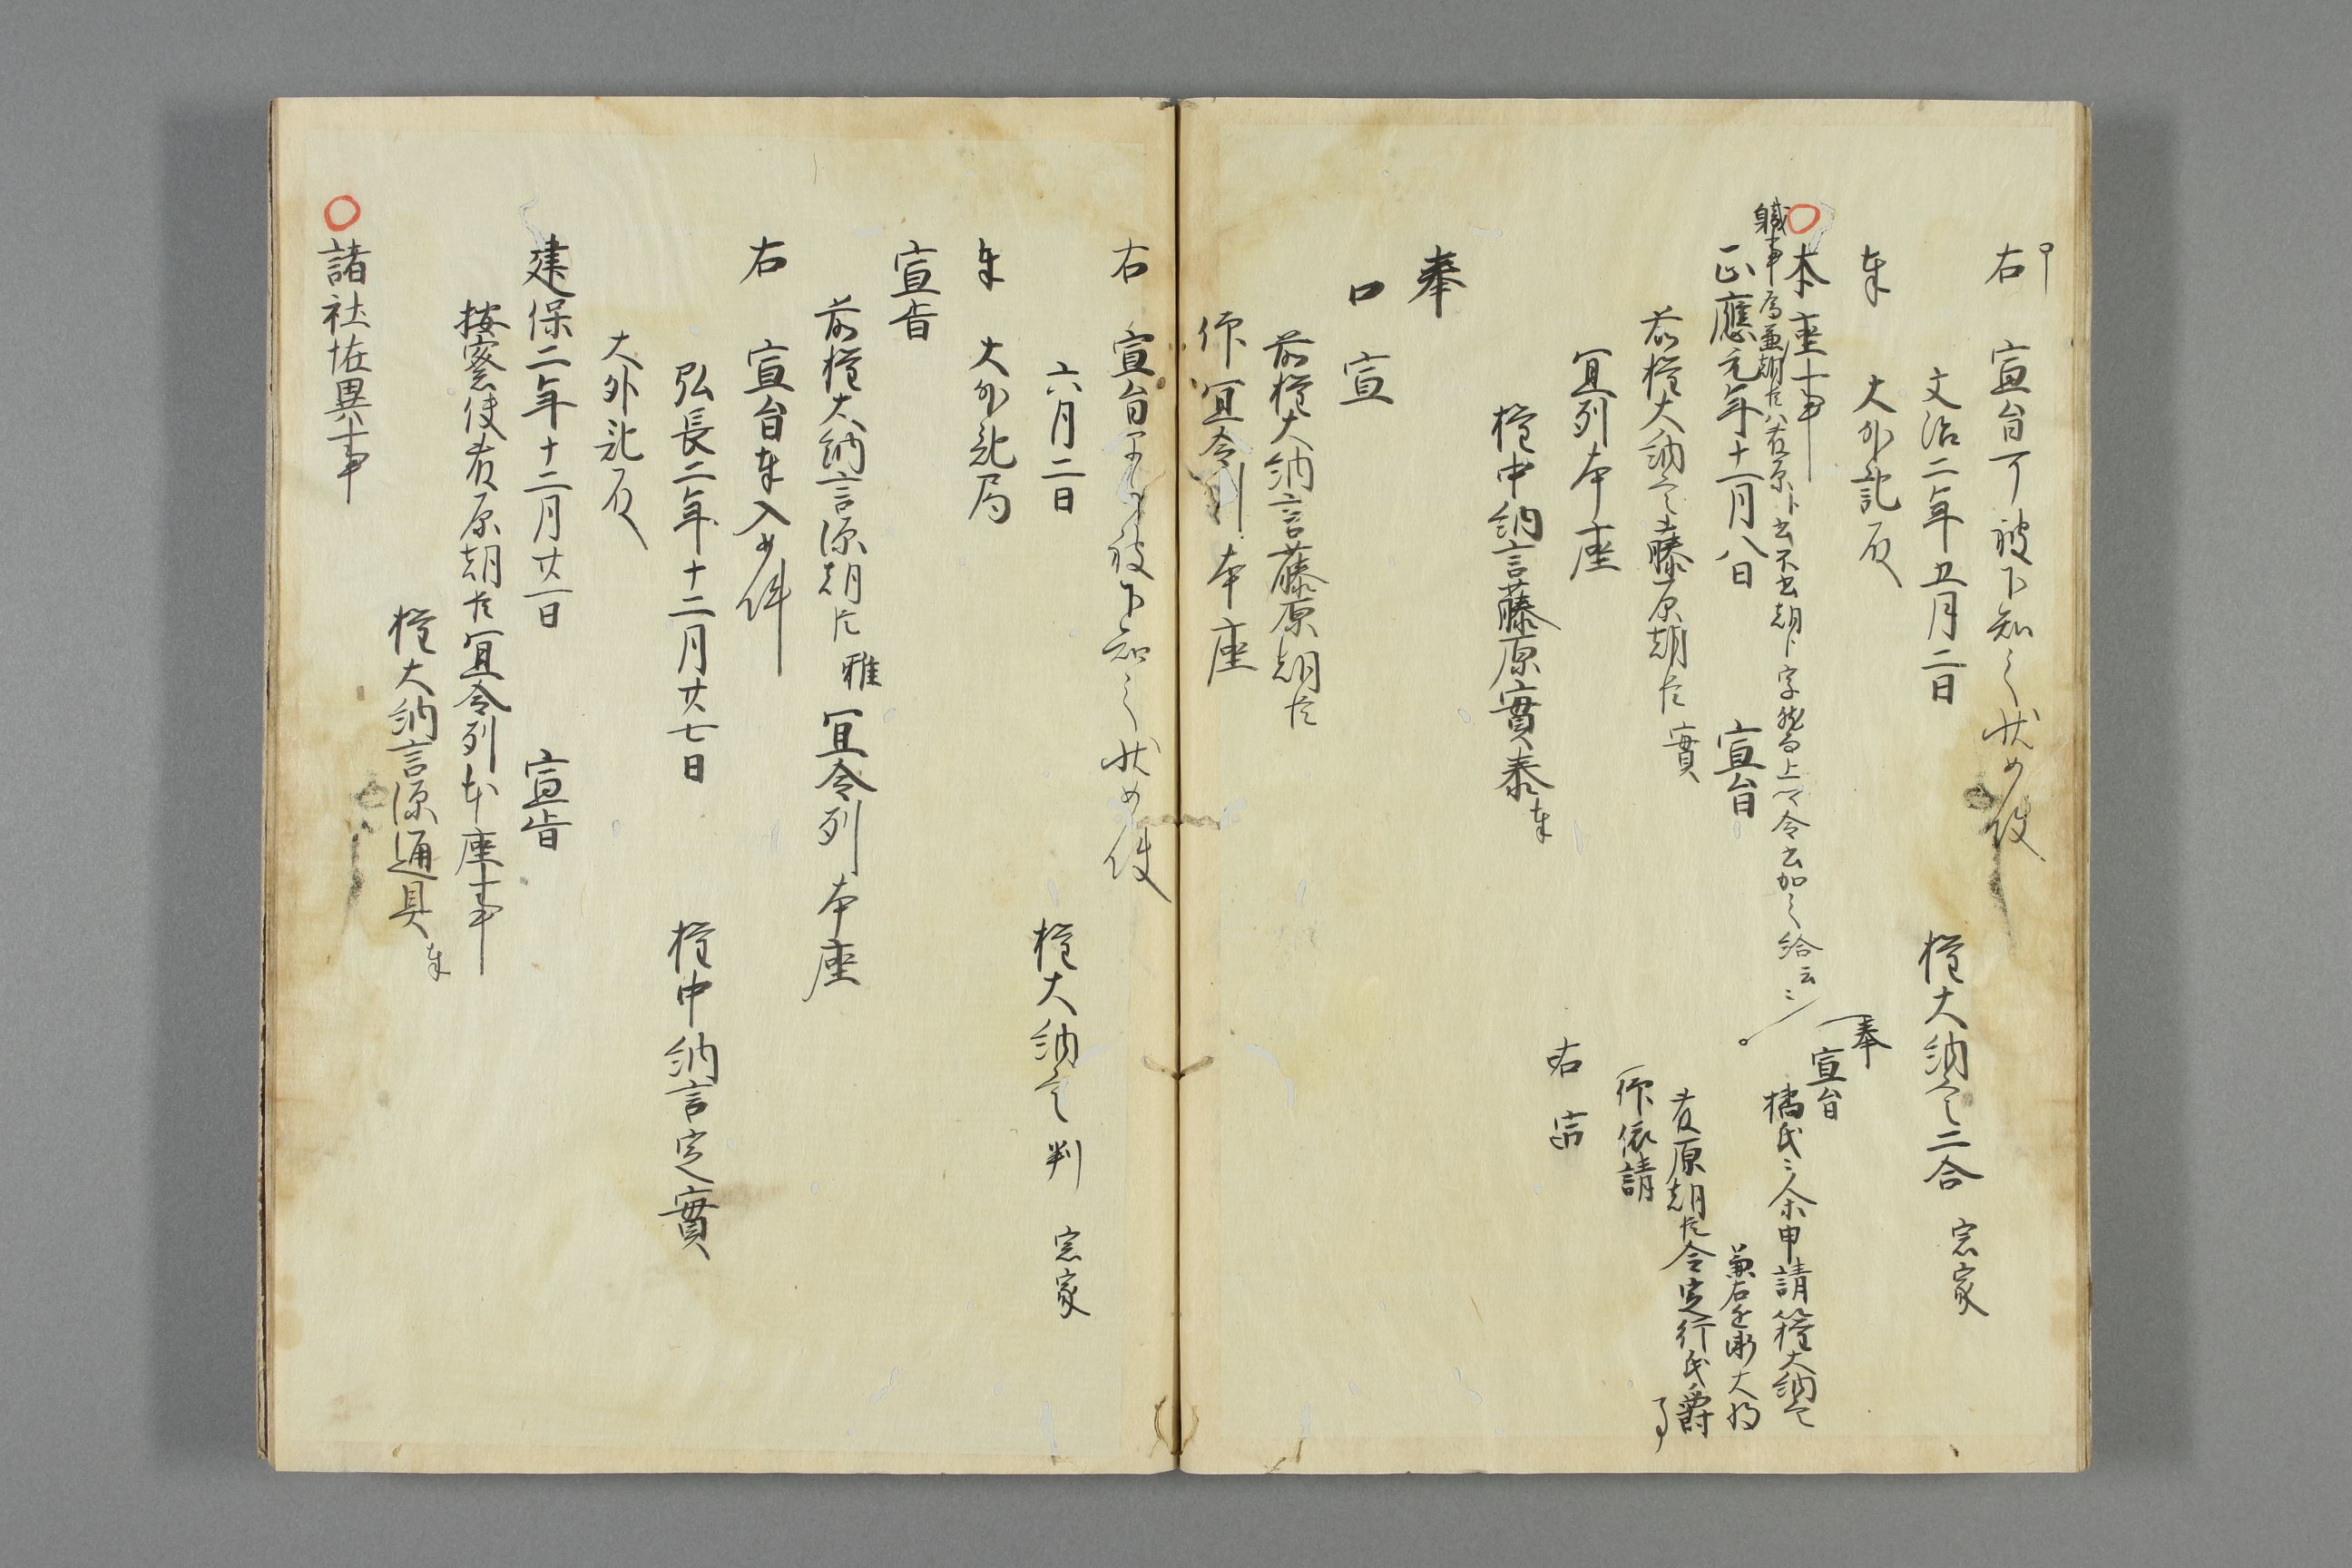 右　宣旨可被下知之状如件
文治二年五月二日　権大納言二合　宗家
奉　大外記殿
本座事
職事
正應元年十一月八日　宣旨
前権大納言藤原朝臣　實
宜列本座
権中納言藤原實泰　奉
奉
宣旨
橘氏
申請権大納言
兼右近衛大将
藤原朝臣令定行氏爵
事
仰依請
右　宗
奉
口　宣
前権大納言藤原朝臣
仰宜令列本座
右　宣旨早可被下知之状如件
六月二日　権大納言判　宗家
奉　大外記局
宣旨
前権大納言源朝臣　雅　宜令列本座
右　宣旨奉入如件
弘長二年十二月廿七日　権中納言定實
大外記殿
建保二年十二月廿一日　宣旨
按察使藤原朝臣宜令列本座事
権大納言源通具　奉
諸社恠異事